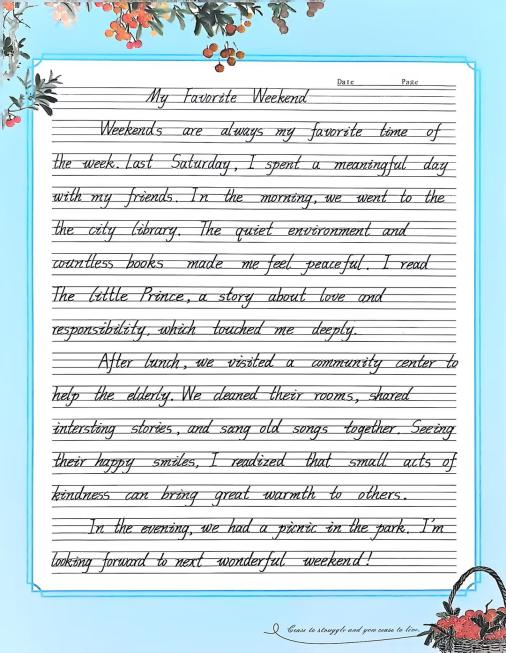 Date Page
My Favorite Weekend
Weekends are always my favorite time of
the week. Last Saturday, I spent a meaningful day
with my friends. In the morning, we went to the
the city library. The quiet environment and
countless books made me feel peaceful. I read
The Little Prince, a story about love and
responsibility, which touched me deeply.
After lunch, we visited a community center to
help the elderly. We cleaned their rooms, shared
intersting stories, and sang old songs together. Seeing
their happy smiles, I readized that small acts of
kindness can bring great warmth to others.
In the evening, we had a picnic in the park. I'm
looking forward to next wonderful weekend!
Cease to struggle and you cease to live.